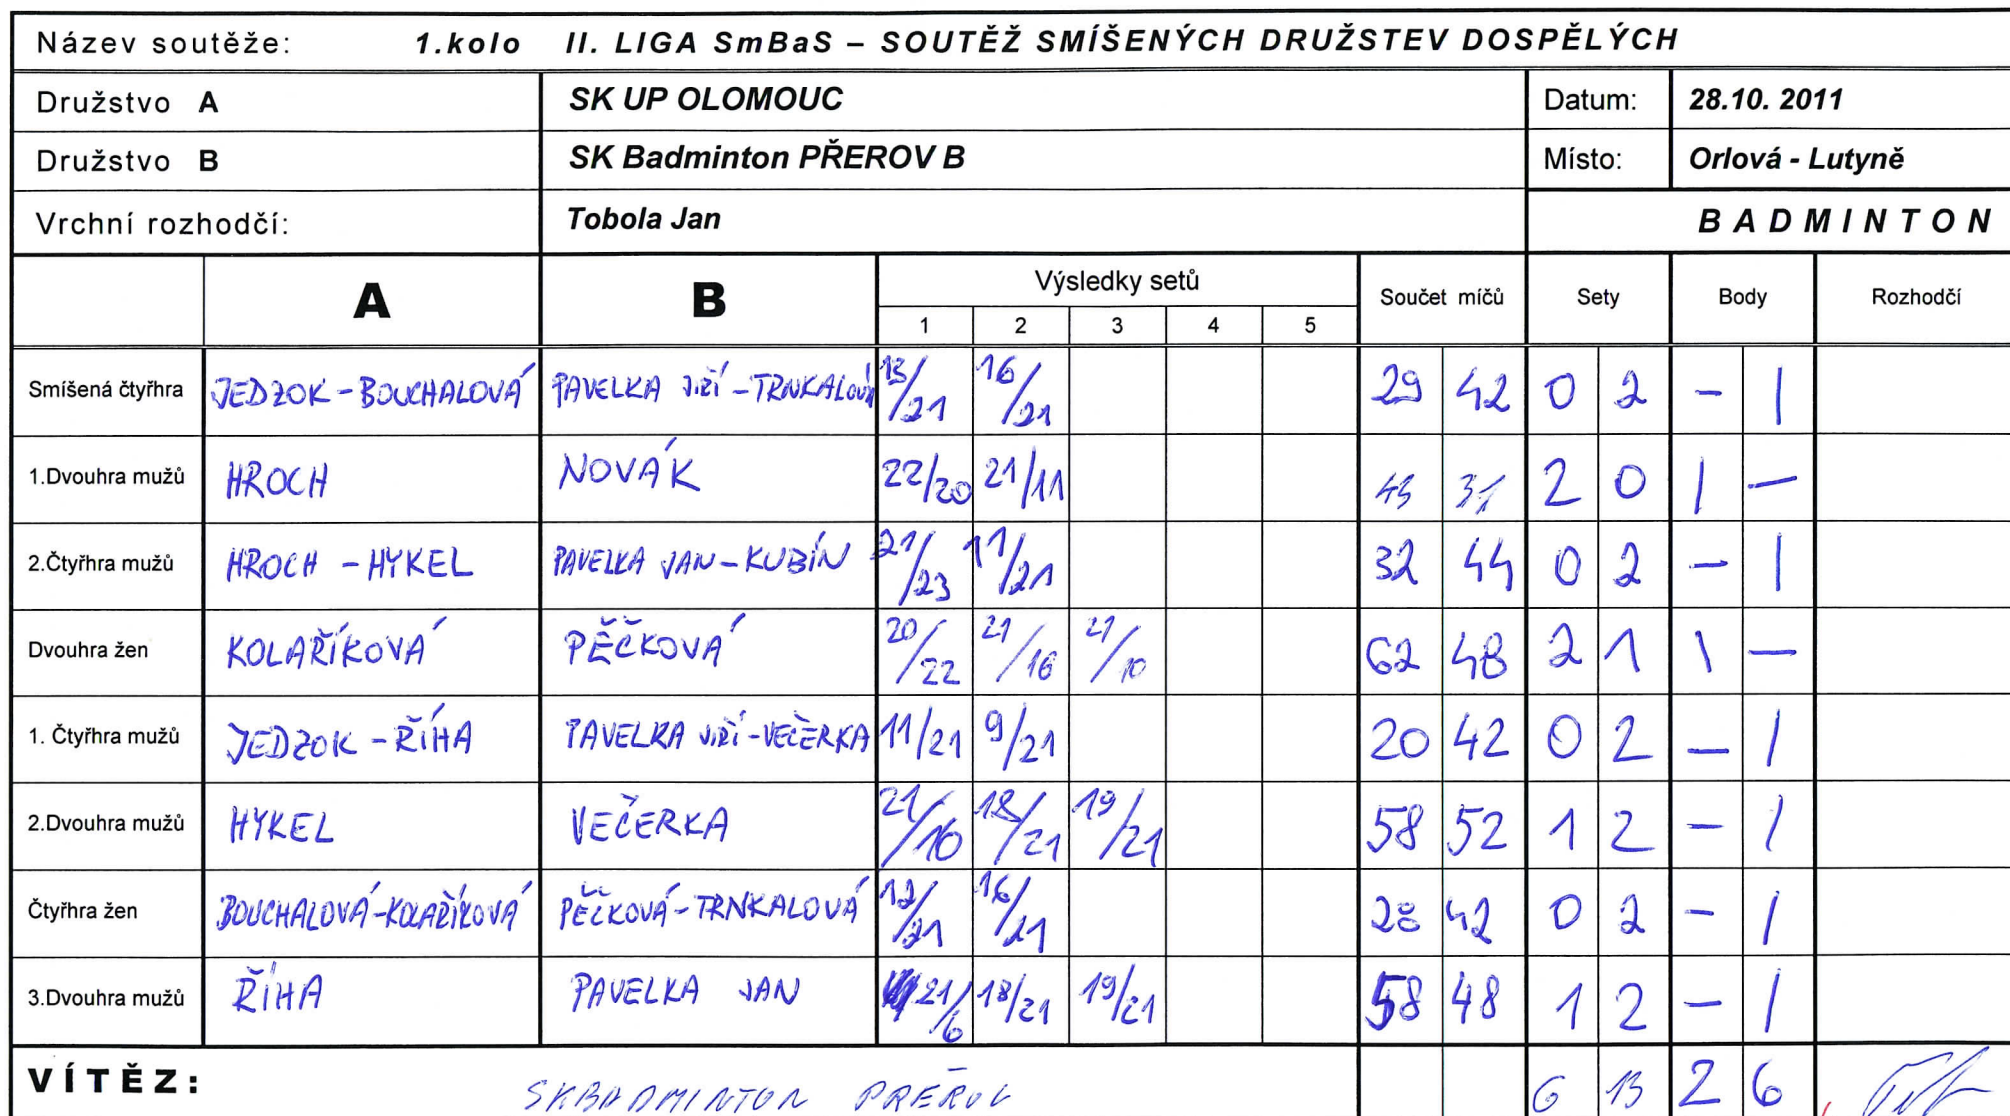 Název soutěže: 1.kolo II. LIGA SmBaS – SOUTĚŽ SMÍŠENÝCH DRUŽSTEV DOSPĚLÝCH
Družstvo A SK UP OLOMOUC Datum: 28.10. 2011
Družstvo B SK Badminton PŘEROV B Místo: Orlová - Lutyně
Vrchní rozhodčí: Tobola Jan BADMINTON
A B Výsledky setů Součet míčů Sety Body Rozhodčí
1 2 3 4 5
Smíšená čtyřhra JEDZOK - BOUCHALOVÁ PAVELKA JIŘÍ - TRNKALOVÁ 13/21 16/21 29 42 0 2 - 1
1.Dvouhra mužů HROCH NOVÁK 22/20 21/11 43 31 2 0 1 -
2.Čtyřhra mužů HROCH - HYKEL PAVELKA JAN - KUBÍN 21/23 11/21 32 44 0 2 - 1
Dvouhra žen KOLAŘÍKOVÁ PĚČKOVÁ 20/22 21/16 21/10 62 48 2 1 1 -
1. Čtyřhra mužů JEDZOK - ŘÍHA PAVELKA JIŘÍ - VEČERKA 11/21 9/21 20 42 0 2 - 1
2.Dvouhra mužů HYKEL VEČERKA 21/10 18/21 19/21 58 52 1 2 - 1
Čtyřhra žen BOUCHALOVÁ - KOLAŘÍKOVÁ PĚČKOVÁ - TRNKALOVÁ 12/21 16/21 28 42 0 2 - 1
3.Dvouhra mužů ŘÍHA PAVELKA JAN 21/6 18/21 19/21 58 48 1 2 - 1
VÍTĚZ: SK BADMINTON PŘEROV 6 13 2 6